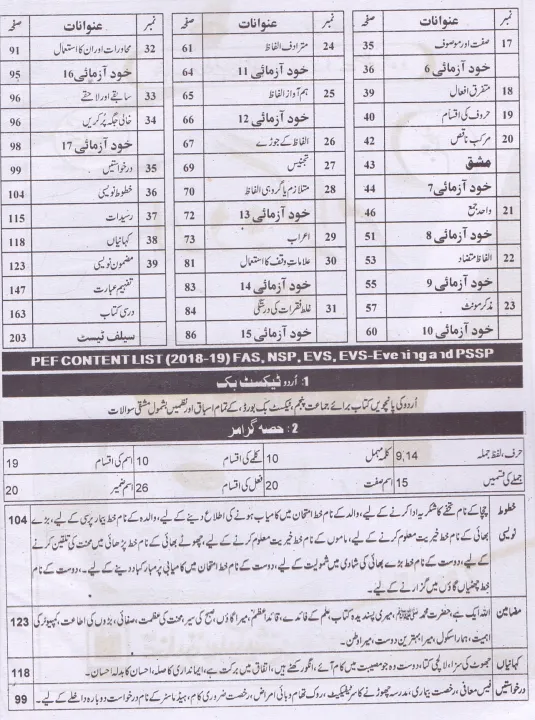 نمبر عنوانات صفحہ
17 صفت اور موصوف 35
خود آزمائی 6 36
18 متفرق افعال 39
19 حروف کی اقسام 40
20 مرکب ناقص 42
مشق 43
خود آزمائی 7 44
21 واحد جمع 46
خود آزمائی 8 51
22 الفاظ متضاد 53
خود آزمائی 9 55
23 مذکر مونث 57
خود آزمائی 10 60
نمبر عنوانات صفحہ
24 مترادف الفاظ 61
خود آزمائی 11 64
25 ہم آواز الفاظ 65
خود آزمائی 12 66
26 الفاظ کے جوڑے 67
27 تجنیس 69
28 متلازم یا گروہی الفاظ 70
خود آزمائی 13 72
29 اعراب 73
30 علامات وقف کا استعمال 81
خود آزمائی 14 83
31 غلط فقرات کی درستگی 84
خود آزمائی 15 86
نمبر عنوانات صفحہ
32 محاورات اور ان کا استعمال 91
خود آزمائی 16 95
33 سابقے اور لاحقے 96
34 خالی جگہ پُر کریں 96
خود آزمائی 17 98
35 درخواستیں 99
36 خطوط نویسی 104
37 رسیدات 115
38 کہانیاں 118
39 مضمون نویسی 123
تفہیم عبارت 147
درسی کتاب 163
سیلف ٹیسٹ 203
PEF CONTENT LIST (2018-19) FAS, NSP, EVS, EVS-Evening and PSSP
1: اُردو ٹیکسٹ بک
اُردو کی پانچویں کتاب برائے جماعت پنجم، ٹیکسٹ بک بورڈ، کے تمام اسباق اور نظمیں بشمول مشقی سوالات
2: حصہ گرامر
حرف، لفظ جملہ 9,14 کلمہ مہمل 10 کلمے کی اقسام 10 اسم کی اقسام 19
جملے کی قسمیں 15 اسم صفت 20 فعل کی اقسام 26 اسم ضمیر 20
خطوط نویسی چچا کے نام تحفے کا شکریہ ادا کرنے کے لیے، والد کے نام خط امتحان میں کامیاب ہونے کی اطلاع دینے کے لیے، والدہ کے نام خط بیمار پرسی کے لیے، بڑے 104
بھائی کے نام خط خیریت معلوم کرنے کے لیے، ماموں کے نام خط خیریت معلوم کرنے کے لیے، چھوٹے بھائی کے نام خط پڑھائی میں محنت کی تلقین کرنے
کے لیے، دوست کے نام خط بڑے بھائی کی شادی میں شمولیت کے لیے، دوست کے نام خط امتحان میں کامیابی پر مبارکباد دینے کے لیے۔، دوست کے نام
خط چھٹیاں گاؤں میں گزارنے کے لیے۔
مضامین اللہ ایک ہے، حضرت محمد ﷺ، میری پسندیدہ کتاب، علم کے فائدے، قائد اعظم، میرا گاؤں، صبح کی سیر، محنت کی عظمت، صفائی، بڑوں کی اطاعت، کمپیوٹر کی 123
اہمیت، ہمارا سکول، میرا بہترین دوست، میرا وطن۔
کہانیاں جھوٹ کی سزا، لالچی کتا، دوست وہ جو مصیبت میں کام آئے، انگور کھٹے ہیں، اتفاق میں برکت ہے، ایمانداری کا صلہ، احسان کا بدلہ احسان۔ 118
درخواستیں فیس معافی، رخصت بیماری، مدرسہ چھوڑنے کا سرٹیفکیٹ، روک تھام وبائی امراض، رخصت ضروری کام، ہیڈ ماسٹر کے نام درخواست دوبارہ داخلے کے لیے۔ 99